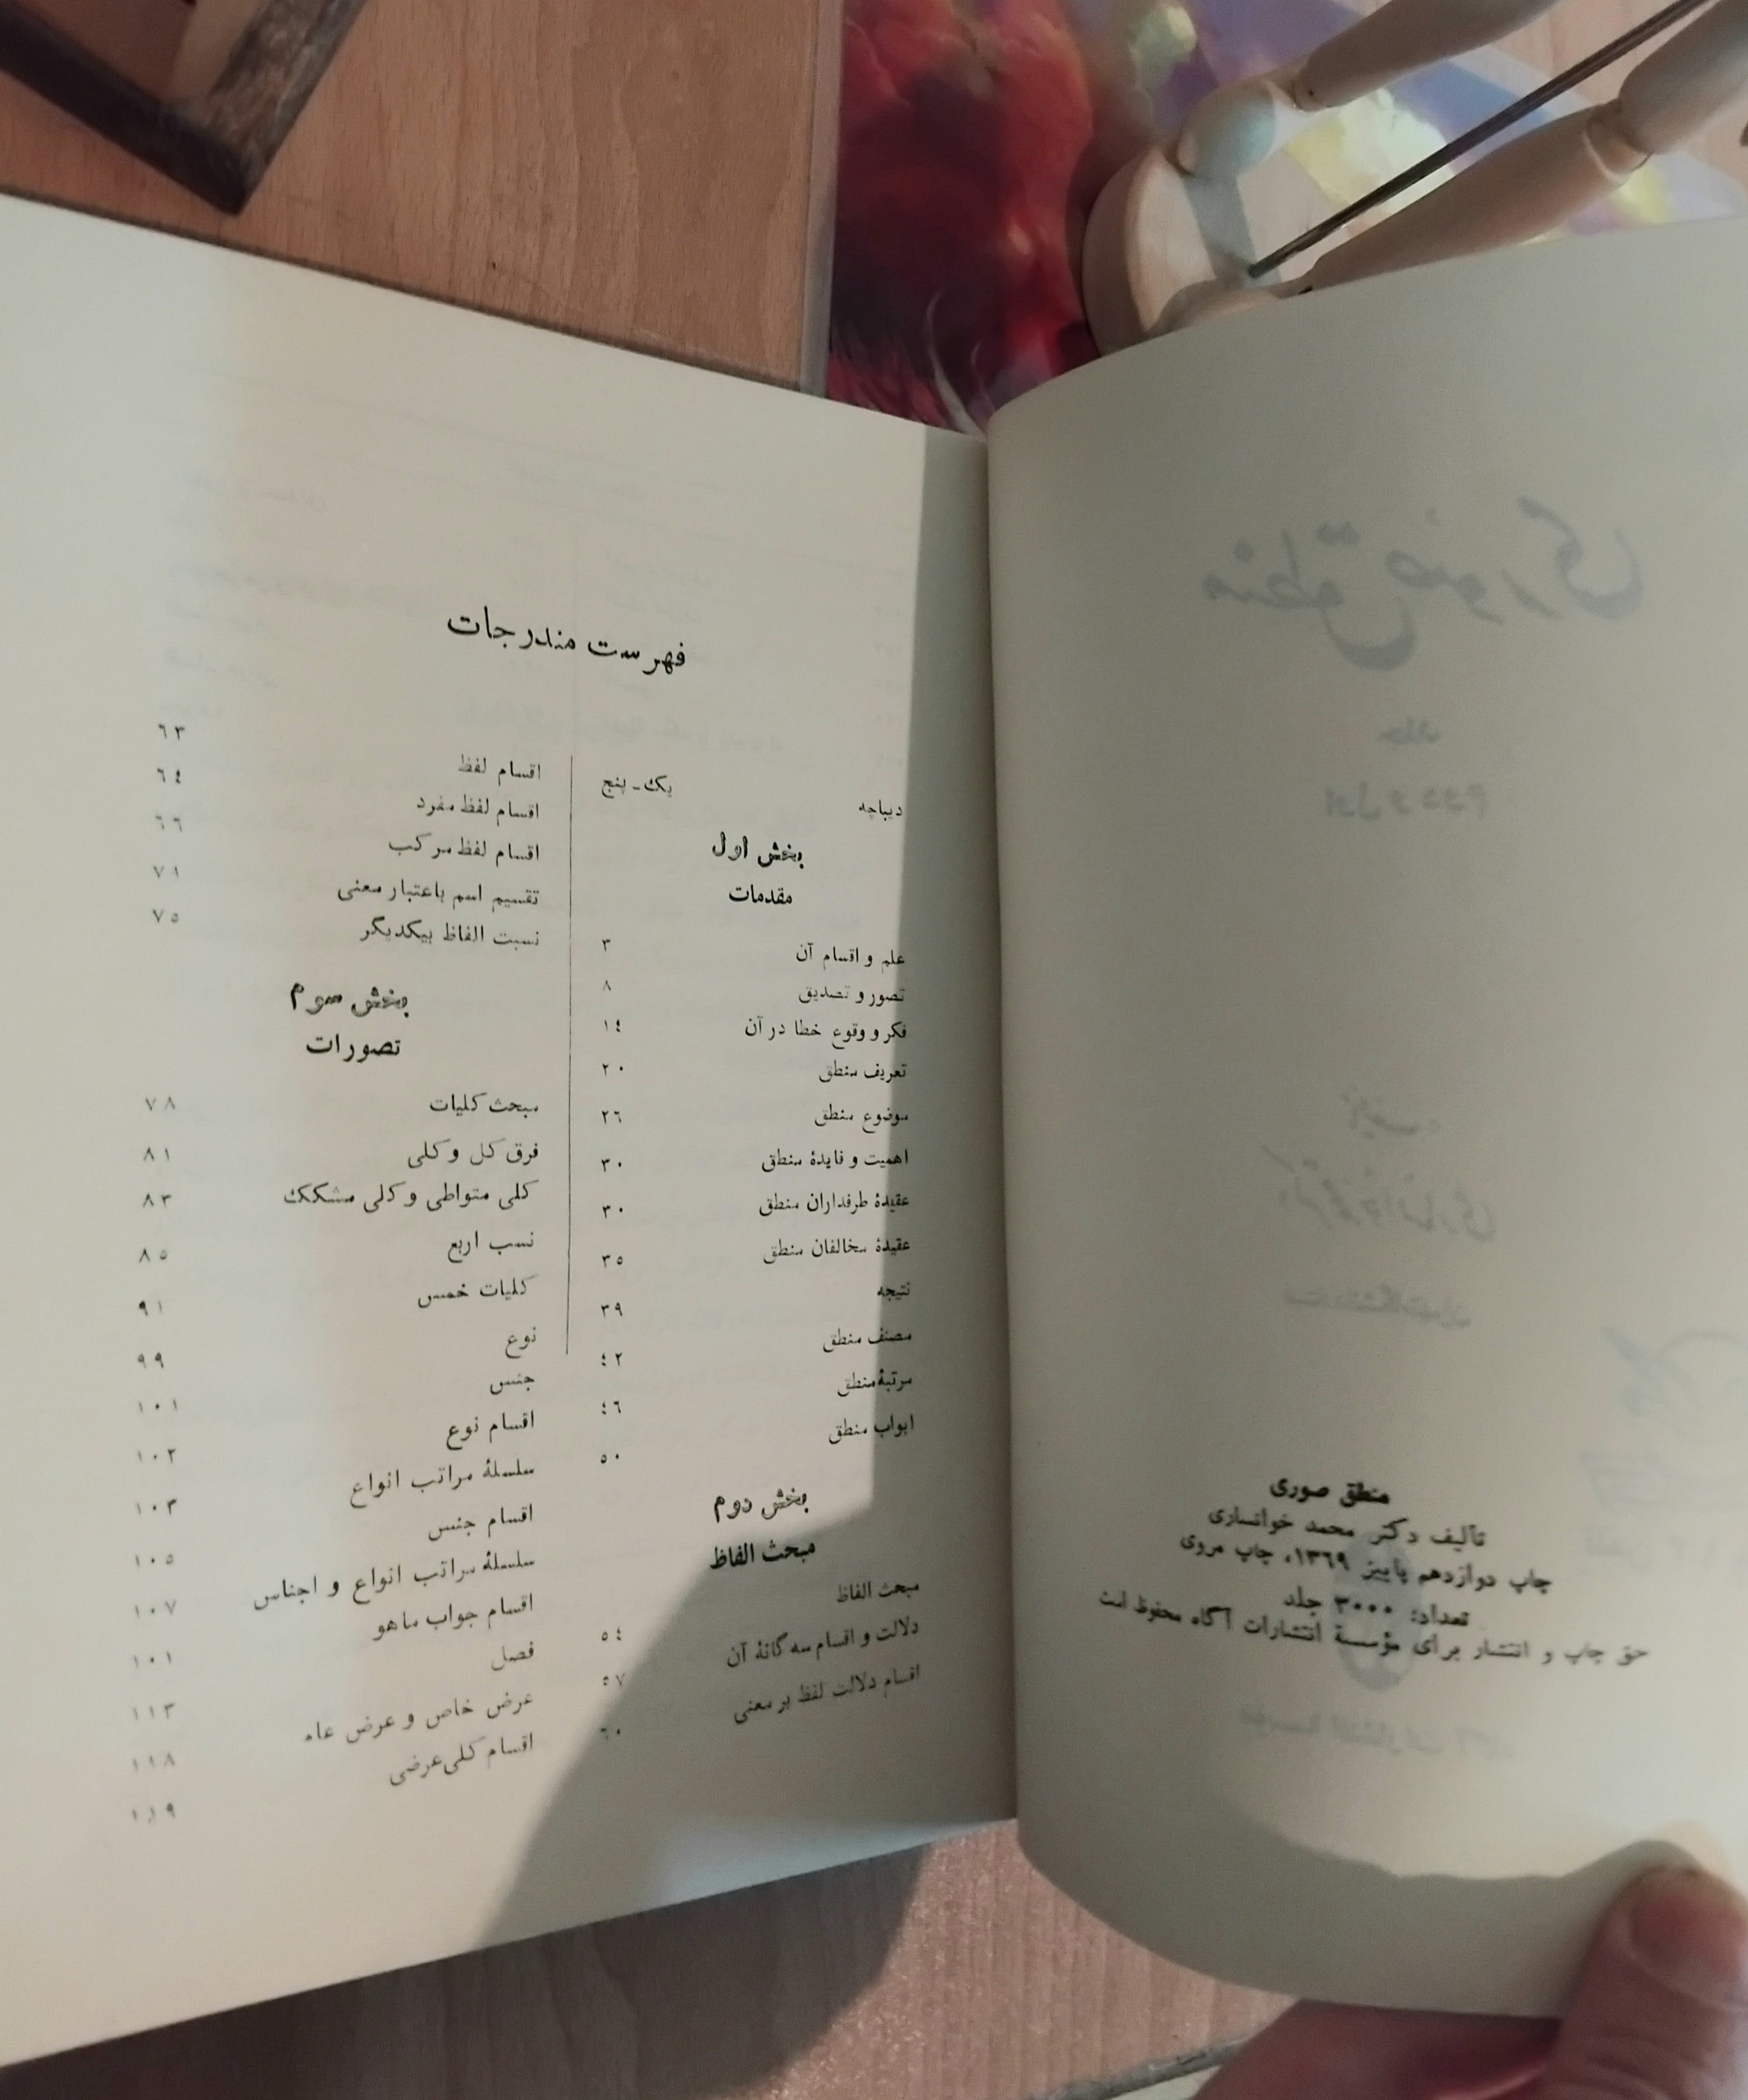 منطق صوری
تألیف دکتر محمد خوانساری
چاپ دوازدهم پاییز ۱۳٦۹، چاپ مروی
تعداد: ۳۰۰۰ جلد
حق چاپ و انتشار برای مؤسسهٔ انتشارات آگاه محفوظ است
فهرست مندرجات
دیباچه یک ـ پنج
بخش اول
مقدمات
علم و اقسام آن ۳
تصور و تصدیق ۸
فکر و وقوع خطا در آن ۱٤
تعریف منطق ۲۰
موضوع منطق ۲٦
اهمیت و فایدهٔ منطق ۳۰
عقیدهٔ طرفداران منطق ۳۰
عقیدهٔ مخالفان منطق ۳۵
نتیجه ۳۹
مصنف منطق ٤۲
مرتبهٔ منطق ٤٦
ابواب منطق ۵۰
بخش دوم
مبحث الفاظ
مبحث الفاظ ۵٤
دلالت و اقسام سه گانهٔ آن ۵۷
اقسام دلالت لفظ بر معنی ٦۰
اقسام لفظ ٦۳
اقسام لفظ مفرد ٦٤
اقسام لفظ مرکب ٦٦
تقسیم اسم باعتبار معنی ۷۱
نسبت الفاظ بیکدیگر ۷۵
بخش سوم
تصورات
مبحث کلیات ۷۸
فرق کل و کلی ۸۱
کلی متواطی و کلی مشکک ۸۳
نسب اربع ۸۵
کلیات خمس ۹۱
نوع ۹۹
جنس ۱۰۱
اقسام نوع ۱۰۲
سلسلهٔ مراتب انواع ۱۰۳
اقسام جنس ۱۰۵
سلسلهٔ مراتب انواع و اجناس ۱۰۷
اقسام جواب ماهو ۱۰۱
فصل ۱۱۳
عرض خاص و عرض عام ۱۱۸
اقسام کلی عرضی ۱۱۹